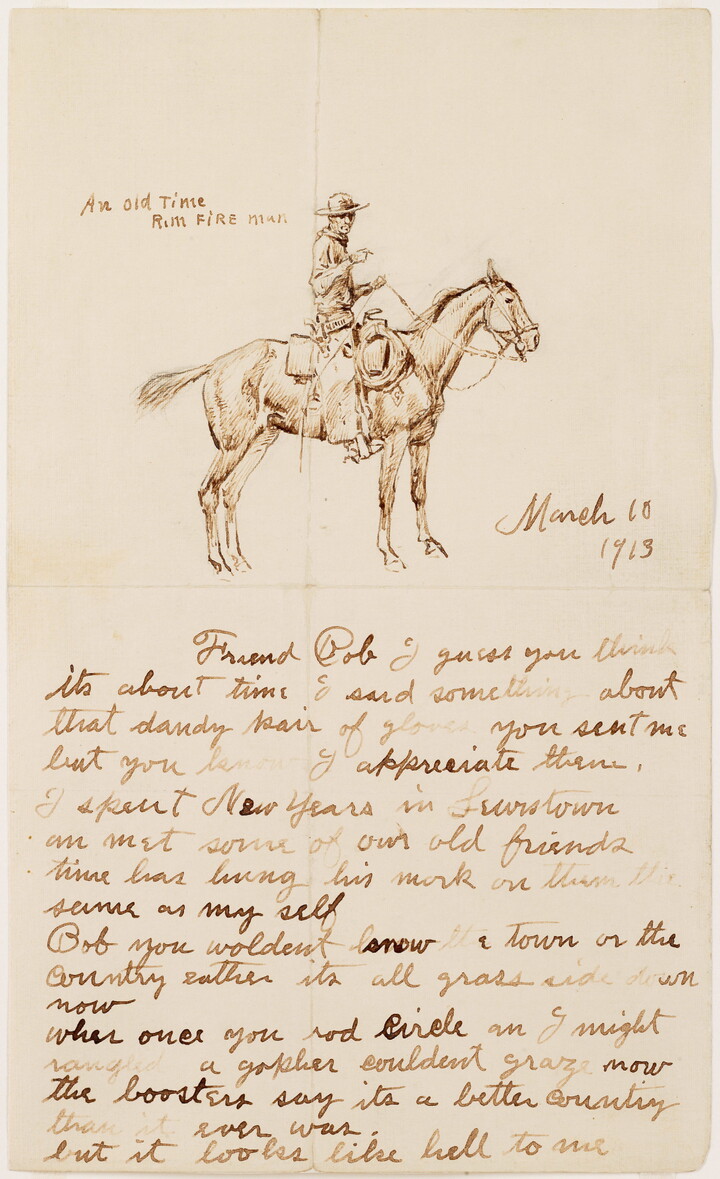 An Old Time
Rim FIRE man
March 10
1913
Friend Bob I guess you think
its about time I said something about
that dandy pair of gloves you sent me
but you know I appreciate them.
I spent New Years in Lewistown
an met some of our old friends
time has hung his mark on them the
same as my self
Bob you woldent know the town or the
country eather its all grass side down
now
wher once you rod circle an I night
rangled a gopher couldent graze now
the boosters say its a better country
than it ever was.
but it looks like hell to me